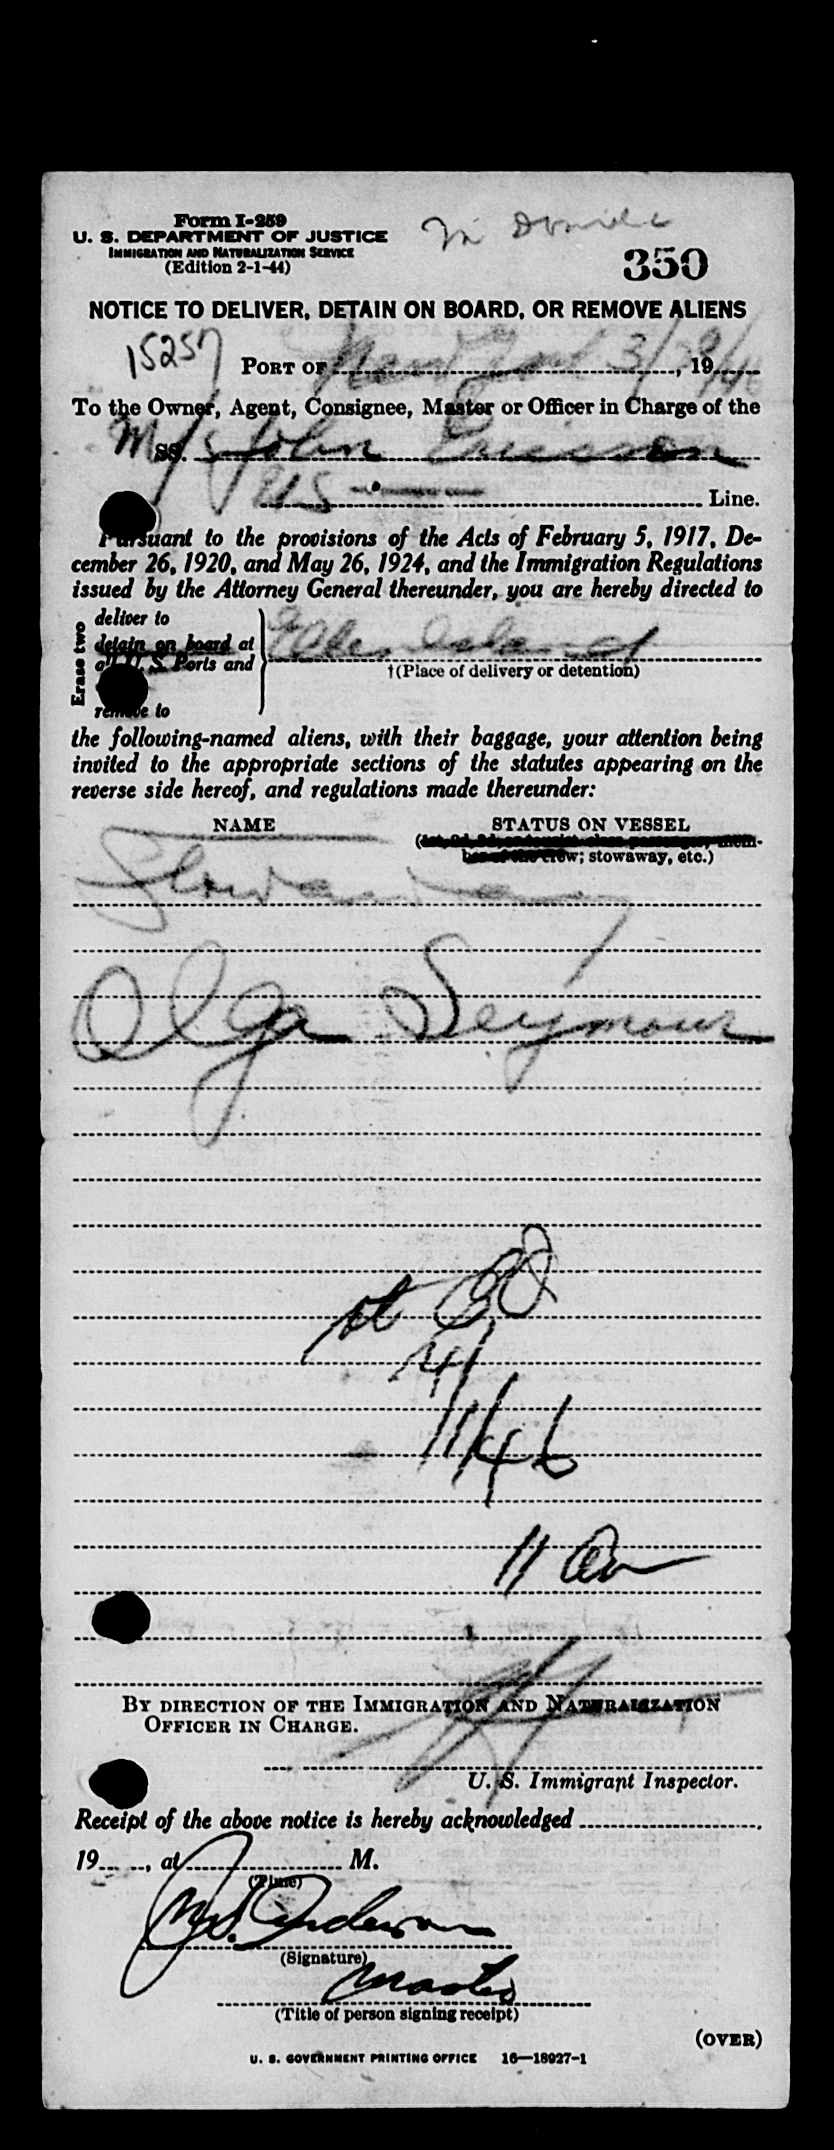 Form I-259
U. S. DEPARTMENT OF JUSTICE
IMMIGRATION AND NATURALIZATION SERVICE
(Edition 2-1-44)
350
NOTICE TO DELIVER, DETAIN ON BOARD, OR REMOVE ALIENS
15257
PORT OF New York 3/29/46, 19
To the Owner, Agent, Consignee, Master or Officer in Charge of the
M/S SS. John Ericsson
US Line.
Pursuant to the provisions of the Acts of February 5, 1917, De-
cember 26, 1920, and May 26, 1924, and the Immigration Regulations
issued by the Attorney General thereunder, you are hereby directed to
Erase two
deliver to
detain on board at
all U. S. Ports and
remove to
Ellis Island
†(Place of delivery or detention)
the following-named aliens, with their baggage, your attention being
invited to the appropriate sections of the statutes appearing on the
reverse side hereof, and regulations made thereunder:
NAME STATUS ON VESSEL
(1st, 2d, 3d, or tourist class passenger, mem-
ber of the crew; stowaway, etc.)
Stowaway
Olga Seymour
4/1/46
11 am
BY DIRECTION OF THE IMMIGRATION AND NATURALIZATION
OFFICER IN CHARGE.
U. S. Immigrant Inspector.
Receipt of the above notice is hereby acknowledged
19 , at M.
(Time)
Anderson
(Signature)
Master
(Title of person signing receipt)
(OVER)
U. S. GOVERNMENT PRINTING OFFICE 16—18927-1